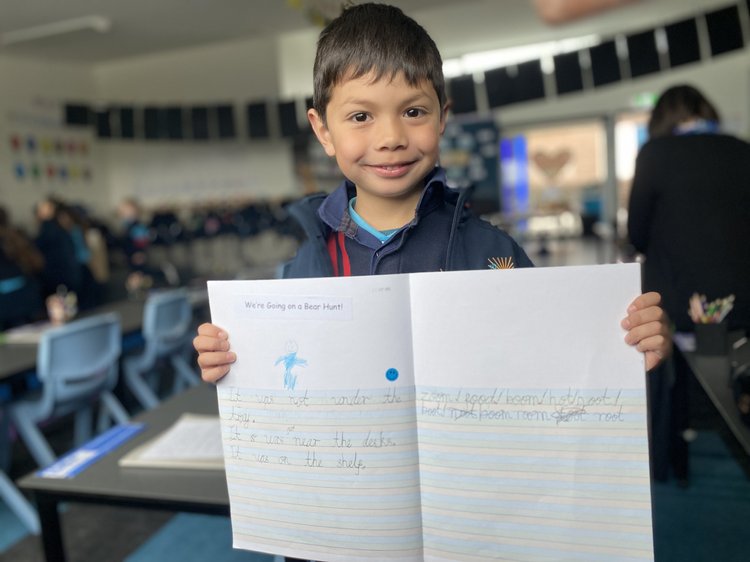 We're Going on a Bear Hunt!
It was not under the
tray.
It was not near the desks.
It was on the shelf.
zoom/ food/ boom/ hot/ root/
boot/ moon room root